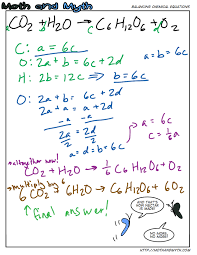 Math and Myth
BALANCING CHEMICAL EQUATIONS
CO2 + H2O → C6H12O6 + O2
C: a = 6c
a = b = 6c
O: 2a + b = 6c + 2d
H: 2b = 12c ⇒ b = 6c
O: 2a + b = 6c + 2d
2a + a = a + 2d
2a = 2d
2 2
a = d
a = d = b = 6c
a = 1
a = 6c
c = 1/6 a
all together now!
CO2 + H2O → 1/6 C6H12O6 + O2
multiply by 6
6 CO2 + 6 H2O → C6H12O6 + 6O2
final answer!
AND THAT'S HOW NECTAR IS MADE!
NO MORE! NO MORE!
HTTP://MATHANDMYTH.COM